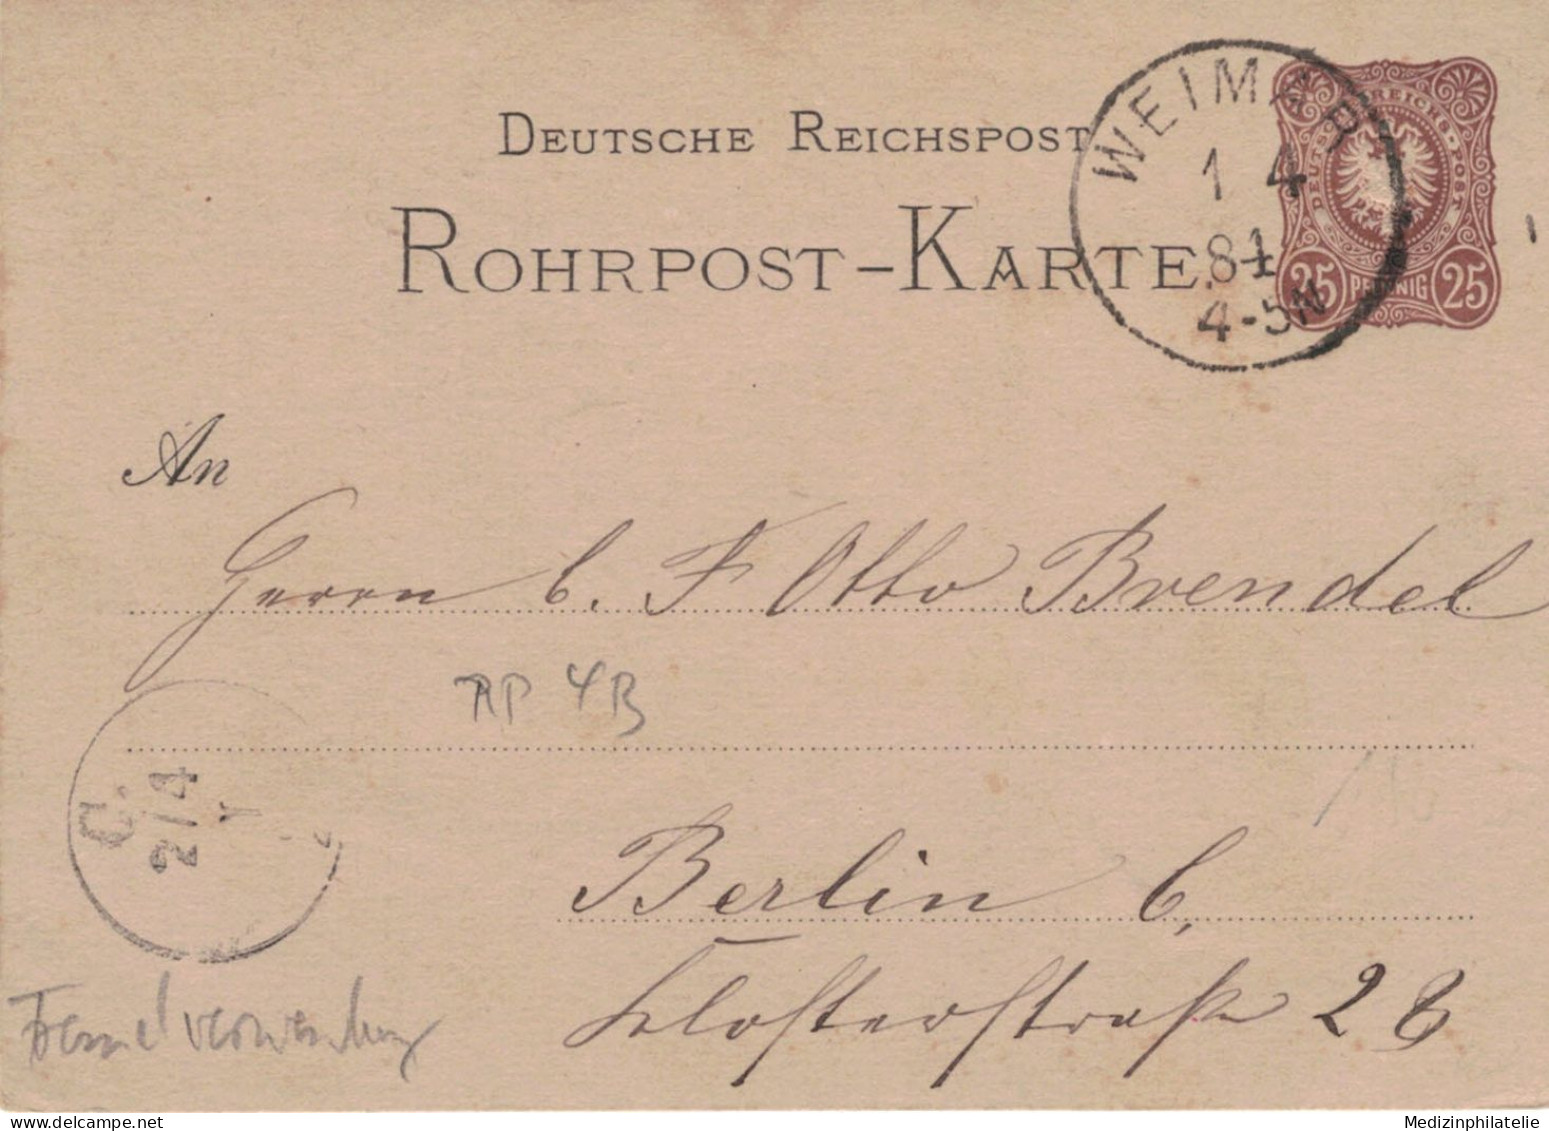 DEUTSCHE REICHSPOST
ROHRPOST-KARTE.
WEIMAR
1 4
84
4-5N
DEUTSCHE REICHS-POST
25 PFENNIG 25
An
Herrn C. F Otto Brendel
RP 4B
C.
2/4
Berlin C,
Klosterstraße 28
Fernverwendung
Medizinphilatelie